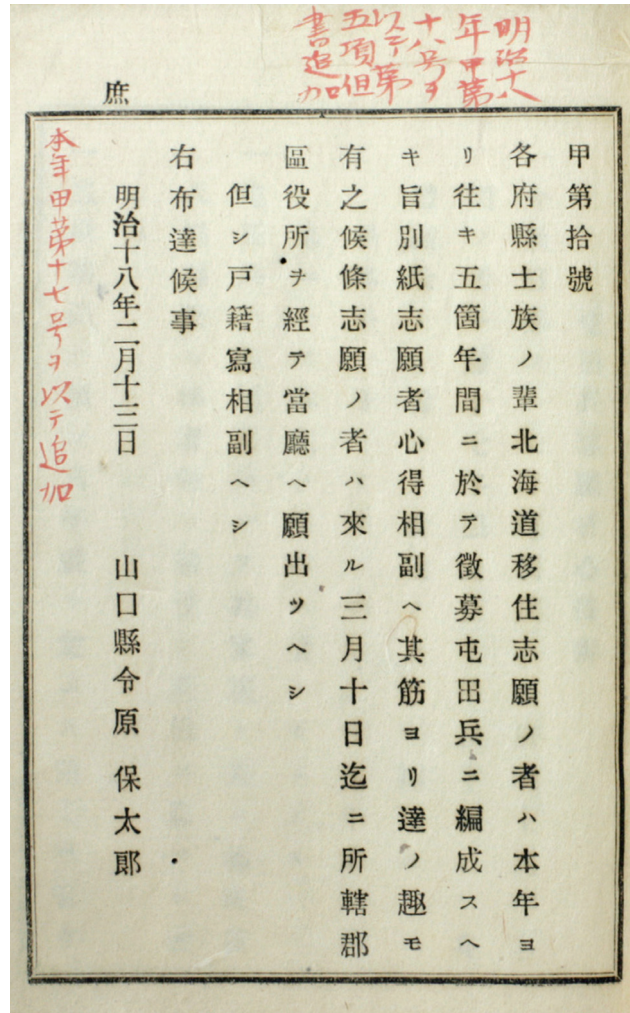 明治十八
年甲第
十八号ヲ
以テ第
五項但
書追加
庶
甲第拾號
各府縣士族ノ輩北海道移住志願ノ者ハ本年ヨ
リ往キ五箇年間ニ於テ徵募屯田兵ニ編成スヘ
キ旨別紙志願者心得相副ヘ其筋ヨリ達ノ趣モ
有之候條志願ノ者ハ來ル三月十日迄ニ所轄郡
區役所ヲ經テ當廳ヘ願出ツヘシ
但シ戸籍寫相副ヘシ
右布達候事
明治十八年二月十三日 山口縣令原保太郎
本年甲第十七号ヲ以テ追加